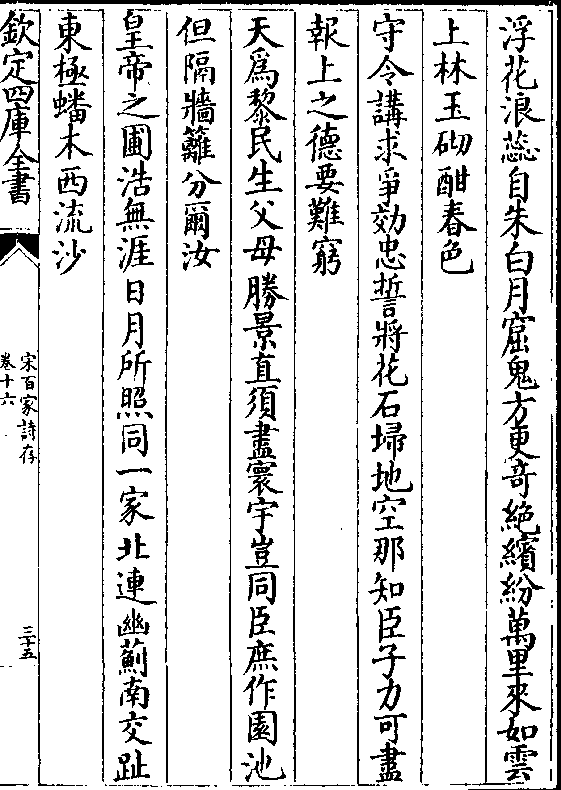 浮花浪蕊自朱白月窟鬼方更奇絶繽紛萬里來如雲
上林玉砌酣春色
守令講求爭効忠誓將花石埽地空那知臣子力可盡
報上之德要難窮
天爲黎民生父母勝景直須盡寰宇豈同臣庶作園池
但隔牆籬分爾汝
皇帝之圃浩無涯日月所照同一家北連幽薊南交趾
東極蟠木西流沙
欽定四庫全書
宋百家詩存
卷十六
三十五